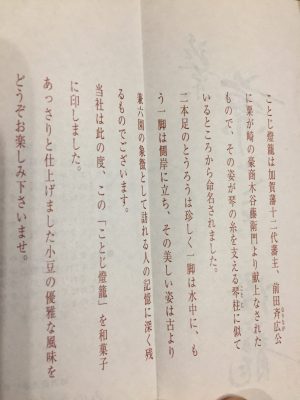 ことじ燈籠は加賀藩十二代藩主、前田斉広公
なりなが
に粟が崎の豪商木谷藤衛門より献上なされた
もので、その姿が琴の糸を支える琴柱に似て
ことじ
いるところから命名されました。
二本足のとうろうは珍しく一脚は水中に、も
う一脚は側岸に立ち、その美しい姿は古より
兼六園の象徴として訪れる人の記憶に深く残
るものでございます。
当社は此の度、この「ことじ燈籠」を和菓子
に印しました。
あっさりと仕上げました小豆の優雅な風味を
どうぞお楽しみ下さいませ。